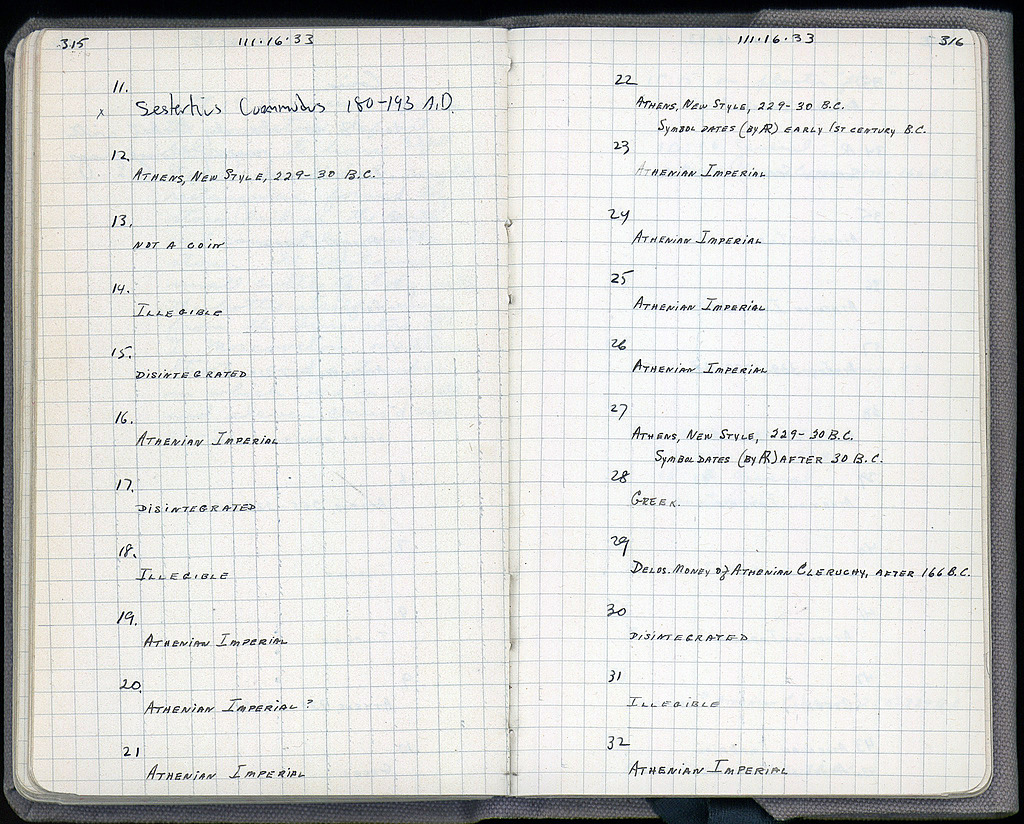 315
111·16·33
11.
x Sestertius Commodus 180-193 A.D.
12.
ATHENS, NEW STYLE, 229-30 B.C.
13.
NOT A COIN
14.
ILLEGIBLE
15.
DISINTEGRATED
16.
ATHENIAN IMPERIAL
17.
DISINTEGRATED
18.
ILLEGIBLE
19.
ATHENIAN IMPERIAL
20.
ATHENIAN IMPERIAL?
21
ATHENIAN IMPERIAL
111·16·33
316
22
ATHENS, NEW STYLE, 229-30 B.C.
SYMBOL DATES (BY ÆR) EARLY 1ST CENTURY B.C.
23
ATHENIAN IMPERIAL
24
ATHENIAN IMPERIAL
25
ATHENIAN IMPERIAL
26
ATHENIAN IMPERIAL
27
ATHENS, NEW STYLE, 229-30 B.C.
SYMBOL DATES (BY ÆR) AFTER 30 B.C.
28
GREEK.
29
DELOS. MONEY OF ATHENIAN CLERUCHY, AFTER 166 B.C.
30
DISINTEGRATED
31
ILLEGIBLE
32
ATHENIAN IMPERIAL